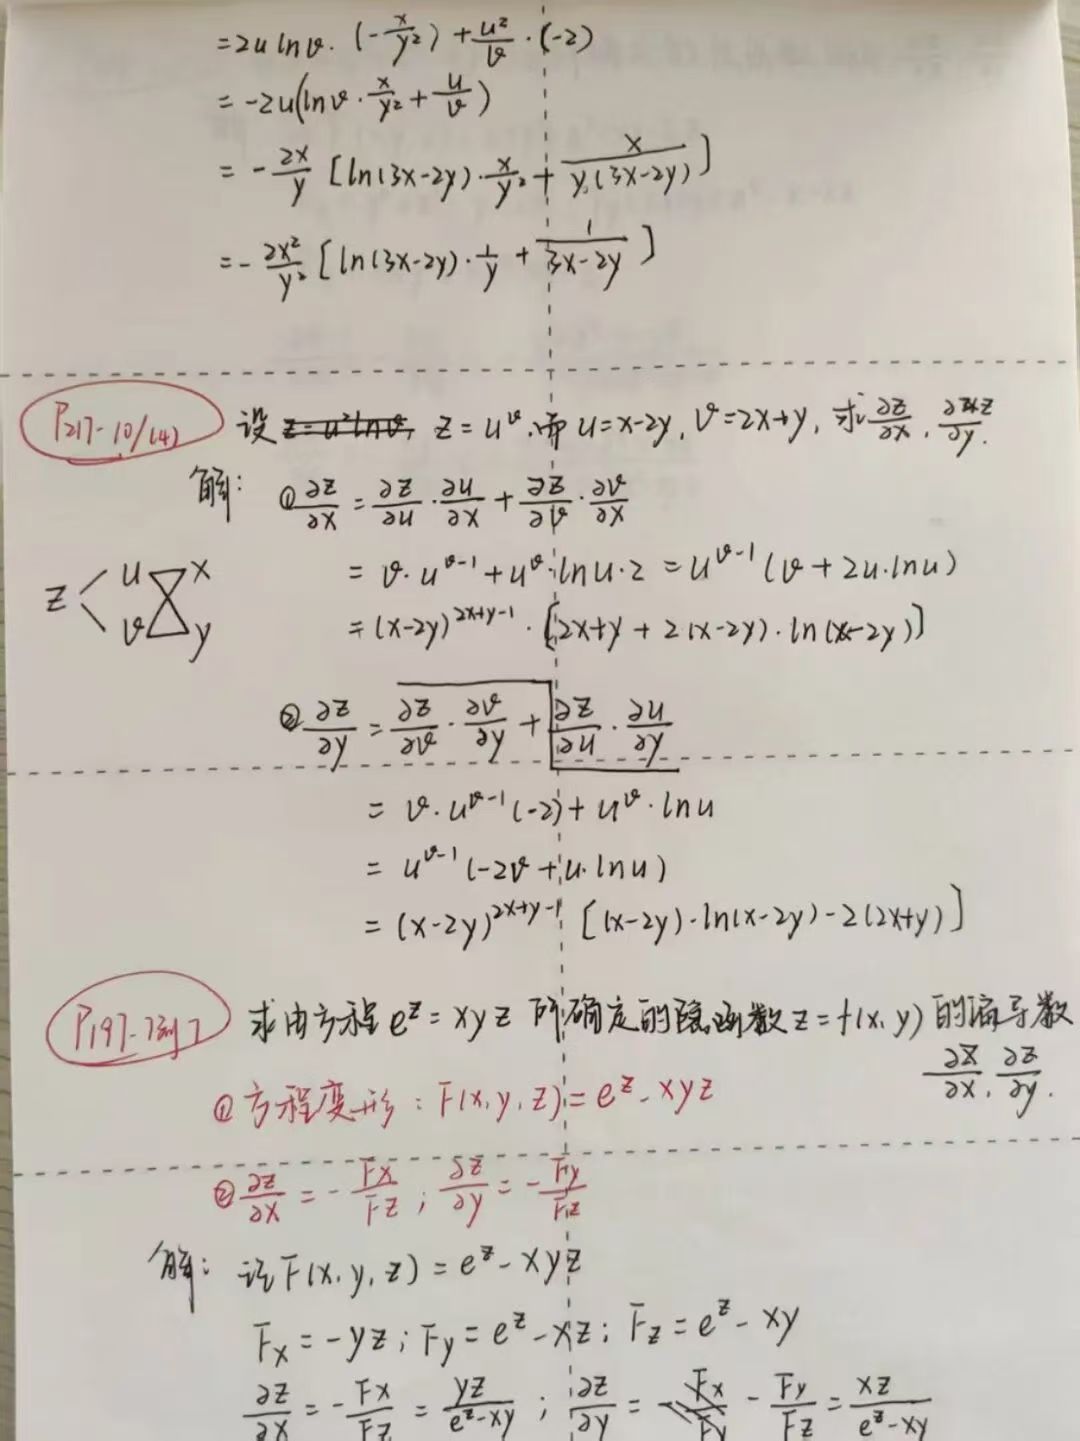 =2u lnv·(-x/y²)+u²/v·(-2)
=-2u(lnv·x/y²+u/v)
=-2x/y[ln(3x-2y)·x/y²+x/y(3x-2y)]
=-2x²/y²[ln(3x-2y)·1/y+1/3x-2y]
P217-10/(4) 设 z=u²lnv, z=u^v,而 u=x-2y, v=2x+y, 求∂z/∂x, ∂z/∂y.
解: ①∂z/∂x=∂z/∂u·∂u/∂x+∂z/∂v·∂v/∂x
=v·u^(v-1)+u^v·lnu·2=u^(v-1)(v+2u·lnu)
z u x
v y
=(x-2y)^(2x+y-1)·[2x+y+2(x-2y)·ln(x-2y)]
②∂z/∂y=∂z/∂v·∂v/∂y+∂z/∂u·∂u/∂y
=v·u^(v-1)(-2)+u^v·lnu
=u^(v-1)(-2v+u·lnu)
=(x-2y)^(2x+y-1)[(x-2y)·ln(x-2y)-2(2x+y)]
P197-例7 求由方程e^z=xyz所确定的隐函数z=f(x,y)的偏导数
∂z/∂x, ∂z/∂y.
①方程变形: F(x,y,z)=e^z-xyz
②∂z/∂x=-Fx/Fz; ∂z/∂y=-Fy/Fz
解: 设F(x,y,z)=e^z-xyz
Fx=-yz; Fy=e^z-xz; Fz=e^z-xy
∂z/∂x=-Fx/Fz=yz/e^z-xy; ∂z/∂y=-Fx/Fy-Fy/Fz=xz/e^z-xy